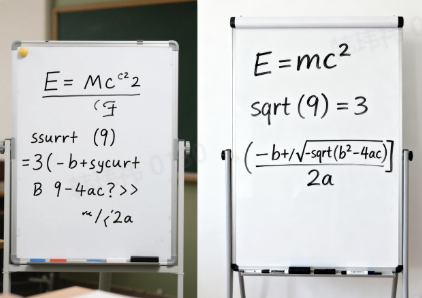 E = Mc^c²2
ssurrt (9)
=3(-b+sycurt
B 9-4ac?>>
/(2a
E = mc²
sqrt (9) = 3
(-b+/√-sqrt(b²-4ac)]
2a